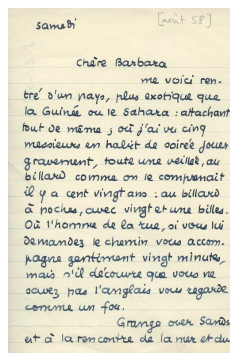 samedi
[août 58]
Chère Barbara
me voici ren-
tré d'un pays, plus exotique que
la Guinée ou le Sahara : attachant
tout de même ; où j'ai vu cinq
messieurs en habit de soirée jouer
gravement, toute une veillée, au
billard comme on le comprenait
il y a cent vingt ans : au billard
à poches, avec vingt et une billes.
Où l'homme de la rue, si vous lui
demandez le chemin vous accom-
pagne gentiment vingt minutes,
mais s'il découvre que vous ne
savez pas l'anglais vous regarde
comme un fou.
Grange over Sands
est à la rencontre de la mer et du